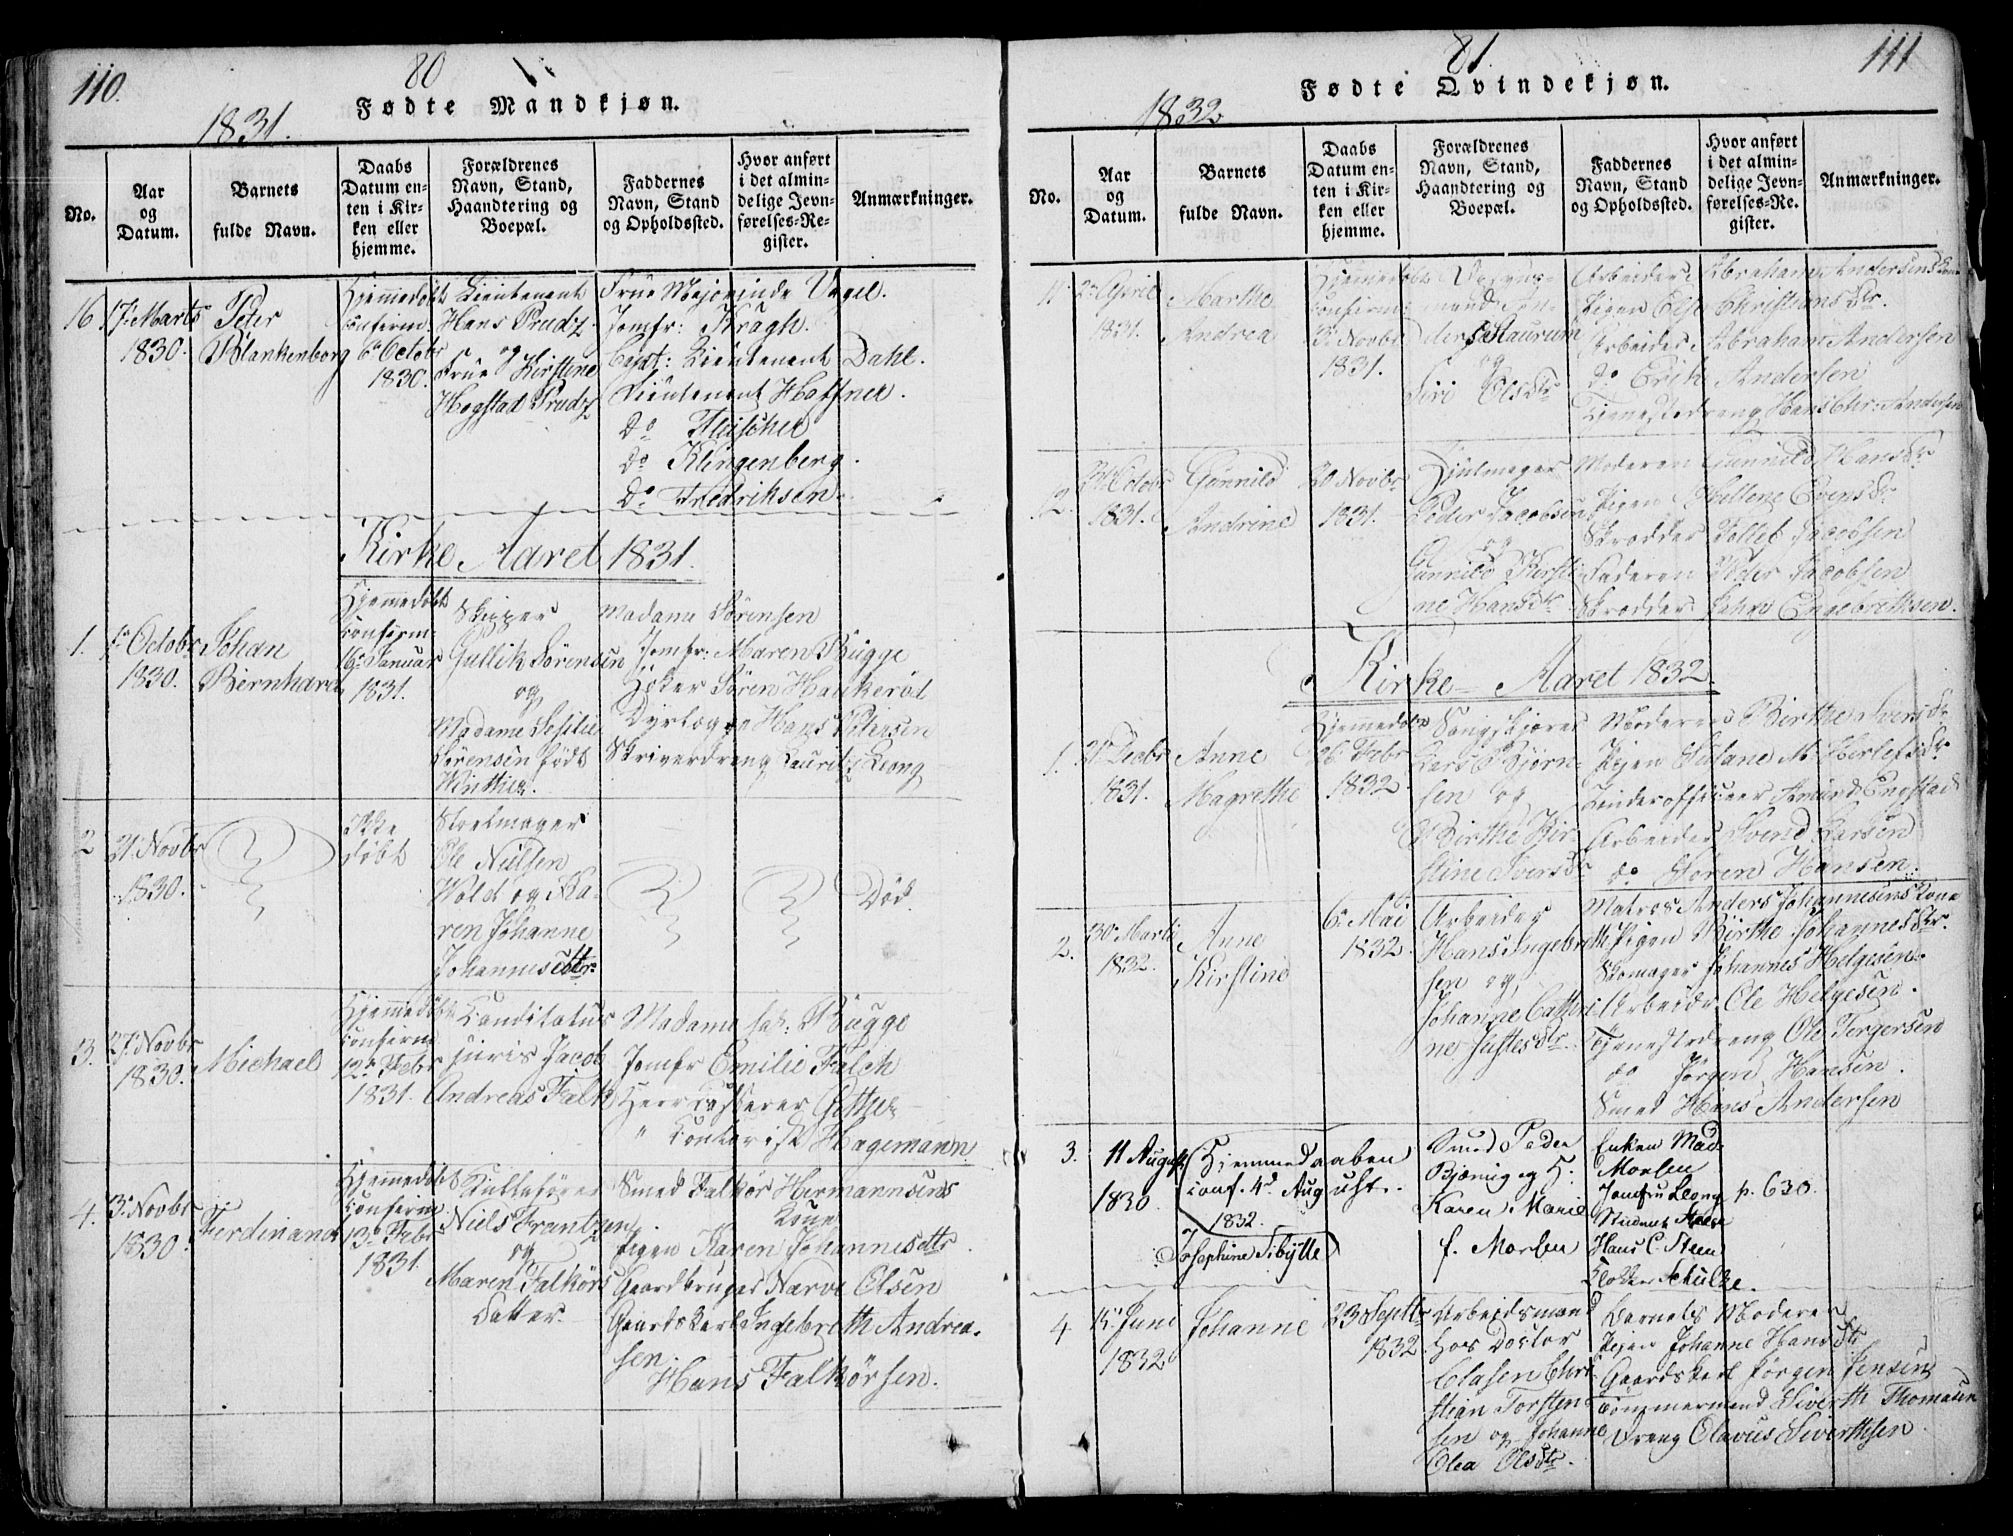 110.
80
1831.
Fødte Mandkjøn.
No.
Aar og Datum.
Barnets fulde Navn.
Daabs Datum enten i Kirken eller hjemme.
Forældrenes Navn, Stand, Haandtering og Boepæl.
Faddernes Navn, Stand og Opholdssted.
Hvor anført i det almindelige Jevnførelses-Register.
Anmærkninger.
16
17 Marts
1830.
Peter
Blankenborg
Hjemmedøbt
Confirm.
6te Octobr
1830.
Lieutenant
Hans Prudz
og
Frue Kirstene
Hegstad Prudz
Frue Majorinde Vogel.
Jomfr: Kragh.
Capt: Lieutenant Dahl.
Lieutenant Haffner.
Do Fleischer
Do Klingenberg.
Do Fredriksen.
Kirke Aaret 1831.
1.
Octobr
1830.
Johan
Bernhard
Hjemmedøbt
Confirm.
16 Januar
1831.
Skipper
Gullik Sørensen
og
Madame
Sørensen født
Winther.
Madame Sørensen
Jomfr: Maren Bugge
Høker Søren Haukerød
Dyrlæge Hans Petersen
Skriverdreng Lauritz Leong
2
21 Novbr
1830.
Ikke
døbt
Stoelmager
Ole Nielsen
Wold og Ka-
ren Johanne
Johannesdttr.
Død.
3.
27 Novbr
1830.
Michael
Hjemmedøbt
Confirm
12 Febr
1831.
Canditatus
juris Jacob
Andreas Falk
Madame sal: Bugge
Jomfr Emilie Falch
Herr Casserer Gether
" Contorist Hagemann
4.
3 Novbr
1830.
Ferdinand
Hjemmedøbt
Confirm
13 Febr
1831.
Niels Frantzen
og
Maren Falkørs
Datter.
Smed Falkør Hermannsens
Kone
Pigen Karen Johannesdttr
Gaardbruger Narve Olsen
Gaardskarl Ingebreth Andrea-
sen.
Hans Falkørsen.
81.
111
1832
Fødte Qvindekjøn.
No.
Aar og Datum.
Barnets fulde Navn.
Daabs Datum enten i Kirken eller hjemme.
Forældrenes Navn, Stand, Haandtering og Boepæl.
Faddernes Navn, Stand og Opholdssted.
Hvor anført i det almindelige Jevnførelses-Register.
Anmærkninger.
11
2 April
1831.
Marthe
Andrea
Hjemmedøbt
Confirm
Novbr
1831.
og
Siri Olsdtr
Arbeider Abraham Andersens Kone
Pigen Else Christiansdtr.
Arbeider Abraham Andersen
do Erik Andersen
Tjenestedreng Hans Chr: Andersen
12.
Octobr
1831.
Gunnild
Andrine
20 Novbr
1831.
Hjulmager
Peder Jacobsen
og
Gunnild Kirsti-
ne Hansdtr
Moderen Gunnild Hansdtr
Pigen Hellene Evensdtr
Skrædder Tollef Jacobsen
Faderen Peter Jacobsen
Skrædder Engebrethsen.
Kirke-Aaret 1832.
1.
21 Decbr
1831.
Anne
Magrethe
Hjemmedøbt
26 Febr
1832.
Lars Bjørn-
sen og
Birthe Kir-
stine Iversdtr
Moderen Birthe Iversdtr
Pigen Susane M. Herlefsdtr
Underofficeer Amund Engstad
Arbeider Svend Larsen
do Søren Hansen.
2.
30 Marti
1832.
Anne
Kirstine
6 Mai
1832
Arbeider
Hans Ingebreth-
sen og
Johanne Cathri-
ne Justesdtr
Matros Anders Johannesens Kone
Pigen Birthe Johannesdtr.
Skomager Johannes Helgesen.
Arbeidr Ole Helgesen.
Tjenestedreng Ole Tergersen
do Jørgen Hansen.
Smed Hans Andersen
3.
11 August
1830
Hjemmedaaben
conf. 4d August.
1832.
Josephine Sibylle
Smed Peder
Bjørnig og H:
Karen Marie
f. Morlen
Enken Mad.
Morlen
Jomfru Leong
Student
Hans C. Steen
Klokker Schulze.
p. 630.
4
15 Juni
1832
Johanne
23 Septbr
1832
Arbeidsmand
hos Doctor
Clasen Chri-
stian Torsten-
sen og Johanne
Olea Olsdtr.
Barnets Moder
Pigen Johanne Hansdtr
Gaardskarl Jørgen Jensen
Tømmermand Siverth Thomasen
Dreng Olavus Siverthsen.